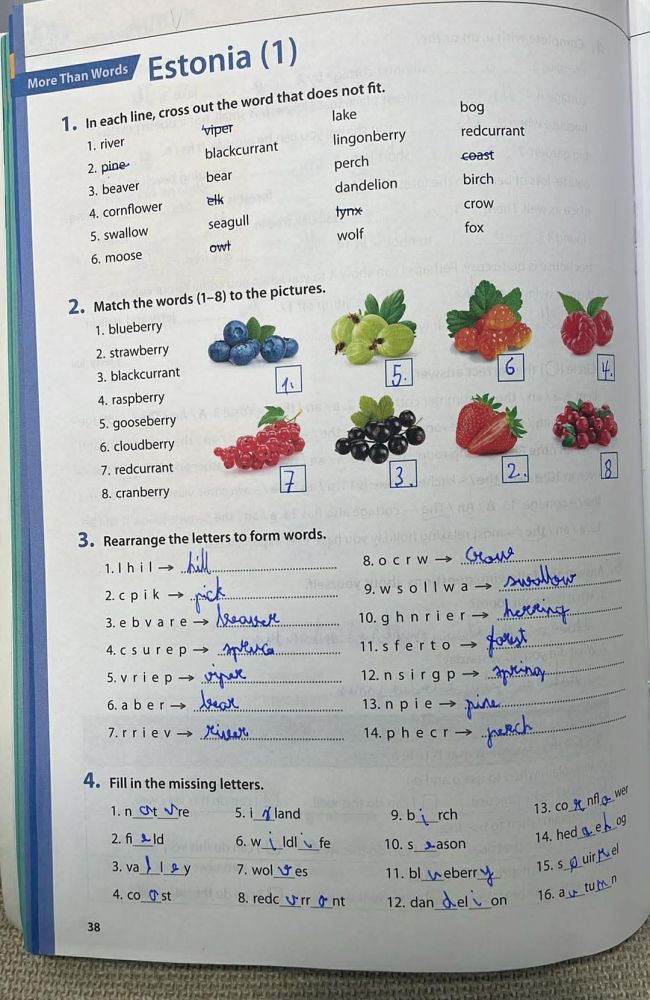 More Than Words Estonia (1)
1. In each line, cross out the word that does not fit.
1. river viper lake bog
2. pine blackcurrant lingonberry redcurrant
3. beaver bear perch coast
4. cornflower elk dandelion birch
5. swallow seagull lynx crow
6. moose owl wolf fox
2. Match the words (1–8) to the pictures.
1. blueberry
2. strawberry
3. blackcurrant
4. raspberry
5. gooseberry
6. cloudberry
7. redcurrant
8. cranberry
1. 5. 6 4.
7 3. 2. 8
3. Rearrange the letters to form words.
1. l h i l → hill
2. c p i k → pick
3. e b v a r e → beaver
4. c s u r e p → spruce
5. v r i e p → viper
6. a b e r → bear
7. r r i e v → river
8. o c r w → Crow
9. w s o l l w a → swallow
10. g h n r i e r → herring
11. s f e r t o → forest
12. n s i r g p → spring
13. n p i e → pine
14. p h e c r → perch
4. Fill in the missing letters.
1. nature
2. field
3. valley
4. coast
5. island
6. wildlife
7. wolves
8. redcurrant
9. birch
10. season
11. blueberry
12. dandelion
13. cornflower
14. hedgehog
15. squirrel
16. autumn
38